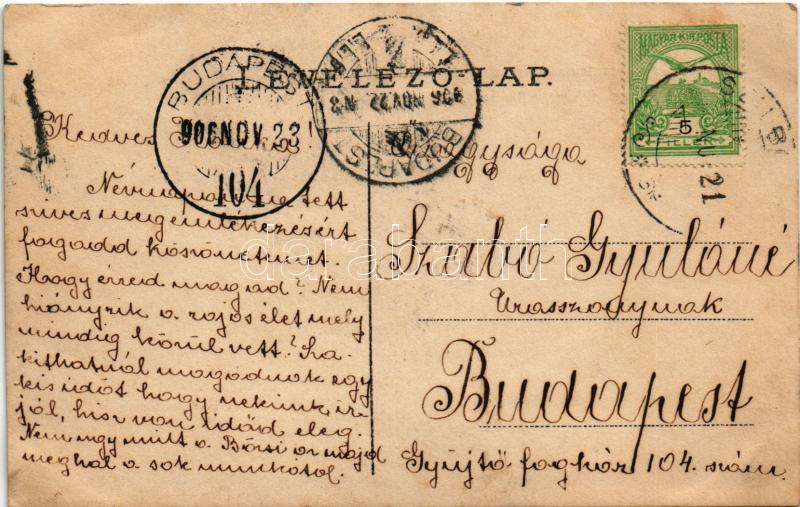 LEVELEZŐ-LAP.
BUDAPEST
906 NOV. 23
104
906 NOV 22
BUDAPEST
MAGYAR KIR. POSTA
5
FILLÉR
21
Kedves
Névnapomra tett
szives megemlékezésért
fogadd köszönetemet.
Hogy érzed magad? Nem
hiányzik a zajos élet mely
mindig körül vett? Sza-
kithatnál magadnak egy
kis időt hogy nekünk ir-
jál, hisz van időd elég.
Nem ugy mint a Börsi or majd
meghal a sok munkától.
Nagysága
Szabó Gyuláné
Urasszonynak
Budapest
Gyüjtő fogház 104. szám.
darabanth